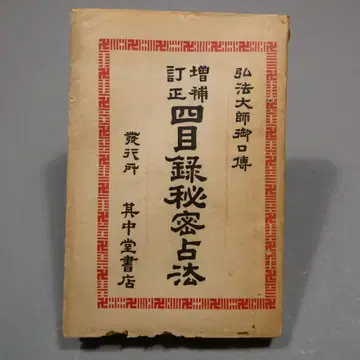 弘法大師御口傳
増補
訂正
四目録秘密占法
發行所 其中堂書店